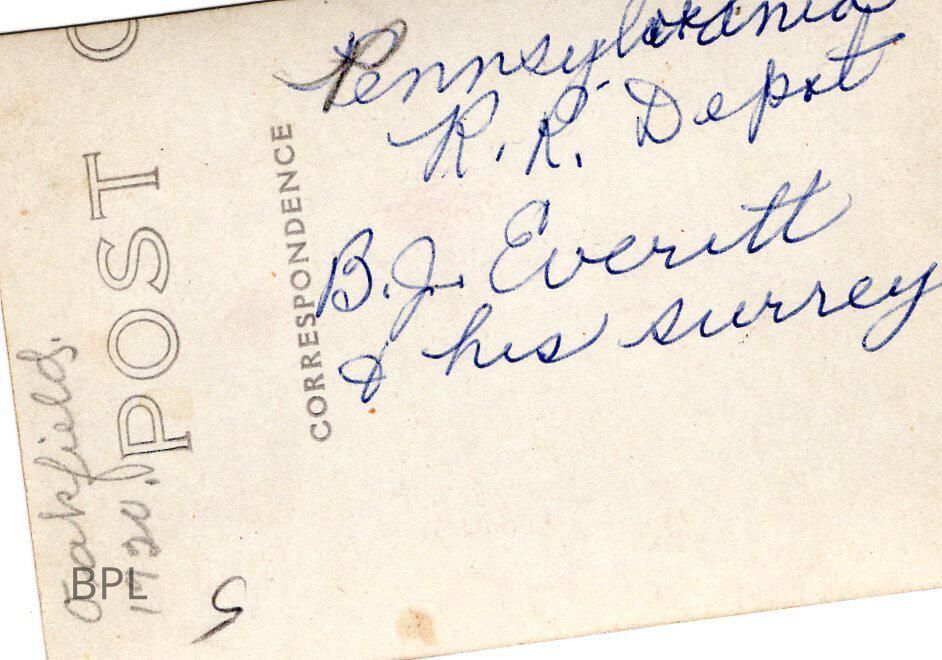 Pennsylvania
R.R. Depot
B.J. Everitt
& his surrey
CORRESPONDENCE
POST C
Oakfields.
1920.
BPL
5